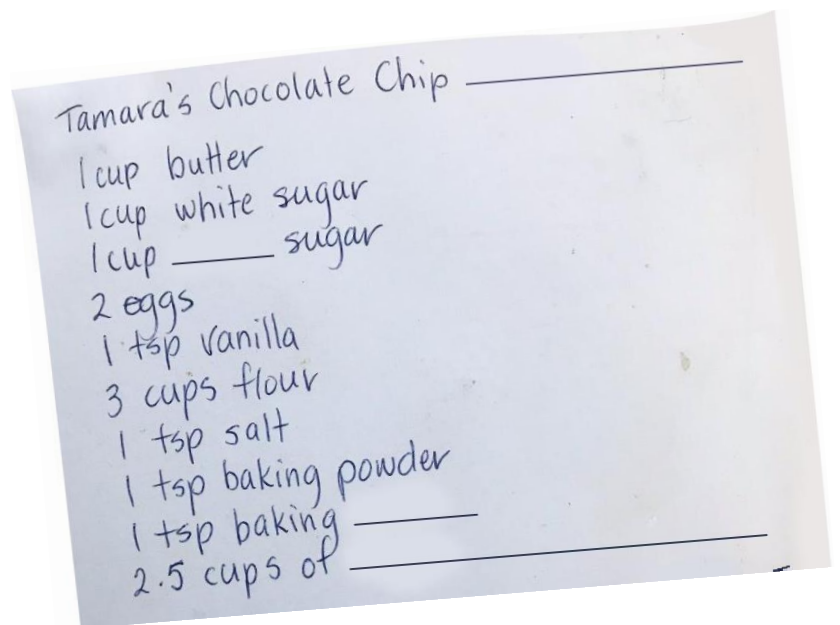 Tamara's Chocolate Chip ________
1 cup butter
1 cup white sugar
1 cup ________ sugar
2 eggs
1 tsp vanilla
3 cups flour
1 tsp salt
1 tsp baking powder
1 tsp baking ________
2.5 cups of ________